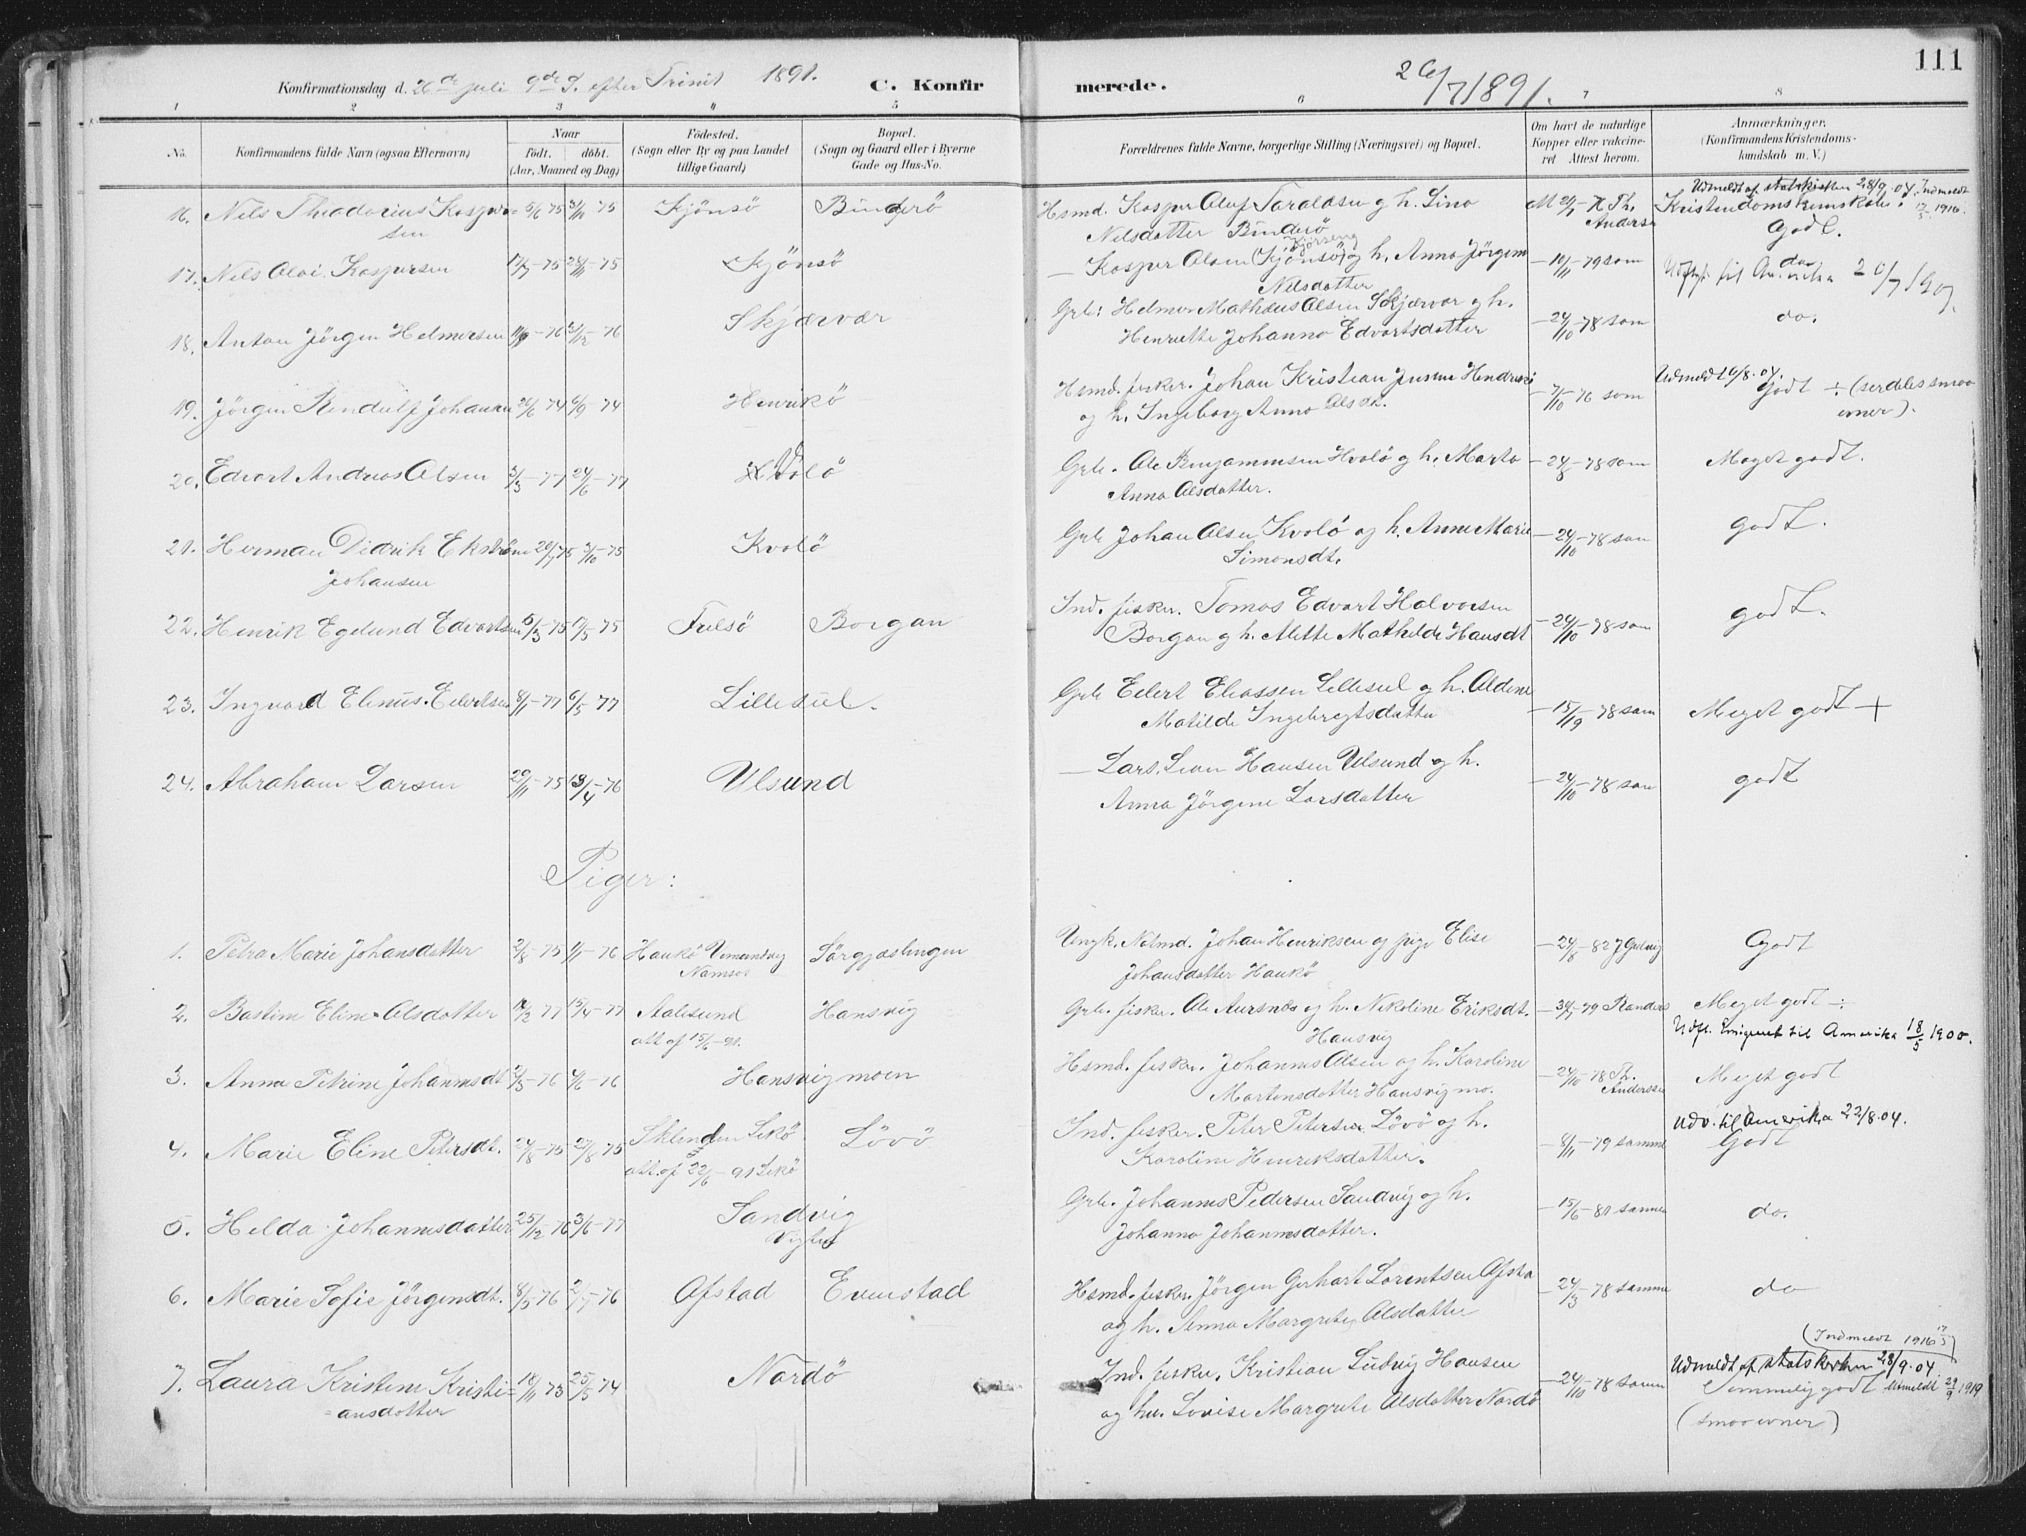 111
Konfirmationsdag d. 26de juli 9de S. efter Trinit 1891. C. Konfirmerede. 26/7 1891.
1 2 3 4 5 6 7 8
No. Konfirmandens fulde Navn (ogsaa Efternavn) Naar födt. döbt. (Aar, Maaned og Dag) Födested. (Sogn eller By og paa Landet tillige Gaard) Bopæl. (Sogn og Gaard eller i Byerne Gade og Hus-No. Forældrenes fulde Navne, borgerlige Stilling (Næringsvei) og Bopæl. Om havt de naturlige Kopper eller vakcineret Attest herom. Anmærkninger. (Konfirmandens Kristendomskundskab m. V.)
Udmeldt af statskirken 28/9.04. Indmeldt 17/5 1916.
16. Nils Theodorius Kaspersen 5/6 75 3/10 75 Kjönsö Binderö Hsmd. Kasper Olaf Taraldsen g h. Lina Nilsdatter Binderö Kristendomskundskab: Godt.
17. Nils Olai Kaspersen 17/7 - 75 28/11 - 75 Kjönsö — Kasper Olsen (Kjönsö) g h. Anna Jörgine Nilsdatter - 10/11 - 79 som do Udflyt. til Amerika 20/7 1907.
18. Anton Jörgen Helmersen - 76 - 76 Skjærvær Grb: Helmer Mathæus Olsen Skjærvær g h. Henriette Johanna Edvartsdatter - 24/10 - 78 som do.
19. Jörgen Rendulf Johansen 26/6 74 6/9 - 74 Henrikö Hsmd. fisker. Johan Kristian Hendriksen og h. Ingeborg Anna Olsdt. - 7/10 - 76 som Udmeldt 6/8.04. Godt ÷ (særdeles smaa evner).
20. Edvart Andreas Olsen 3/3 - 77 24/6 - 77 Hvalö Grb. Ole Benjaminsen Hvalö g h. Marta Anna Olsdatter. - 24/8 - 78 som Meget godt.
21. Herman Didrik Ekström Johansen 20/7 75 3/10 - 75 Kvalö Grb Johan Olsen Kvalö og h. Anne Marie Simonsdt. - 24/10 - 78 som godt.
22. Henrik Egelund Edvartsen 5/3 - 75 17/5 - 75 Fulsö Borgan Ind. fisker. Tomas Edvart Halvorsen Borgan g h. Alette Mathilde Hansdt - 24/10 - 78 som godt.
23. Ingvard Elenus Eilertsen 8/1 - 77 6/5 77 Lillesul. Grb Eilert Eliassen Lillesul g h. Aldine Matilde Ingebregtsdatter - 15/19 - 78 som Meget godt +
24. Abraham Larsen 20/11 - 75 18/4 - 76 Ulsund — Lars Hansen Ulsund g h. Anna Jörgine Larsdatter - 24/10 - 78 som godt
Piger:
1. Petra Marie Johansdatter 2/8 - 75 1/1 - 76 Haukö Vemundvig Namsos Sörgjæslingen Ungk. Nölmd. Johan Henriksen og pige Elise Johansdatter Haukö - 24/8 - 82 Godt
2. Bastine Eline Olsdatter 12/2 77 15/4 - 77 Aalesund att af 15/6 - 91. Hansvig Grb. fisker. Ole Aursnes og h. Nikoline Eriksdt. Hansvig - 79 Randers Meget godt ÷ Udfl. Emigreret til Amerika 18/5 1900.
3. Anna Petrine Johannesdt - 76 4/6 - 76 Hansvigmoen Hsmd. fisker. Johannes Olsen og h. Karoline Martensdatter Hansvigmo. - 24/10 - 78 Th. Anderssen Meget godt
4. Marie Eline Petersdt. 24/8 - 75 27/8 75 Sklinden Lekö att. af 22/6 - 91 Lekö Lövö Ind. fisker. Peter Petersen Lövö g h. Karoline Henriksdatter. - 8/11 - 79 samme Udv. til Amerika 22/8.04. Godt
5. Helda Johannesdatter 25/12 - 76 3/6 - 77 Sandvig Vigten Grb. Johannes Pedersen Sandvig og h. Johanna Johannesdatter. - 15/6 - 80 samme do.
6. Marie Sofie Jörgensdt. 8/5 76 2/7 - 76 Ofstad Evenstad Hsmd. fisker. Jörgen Gerhart Lorentsen Ofstad og h. Anna Margrete Olsdatter - 24/3 - 78 samme do
7. Laura Kristine Kristiansdatter 18/11 73 25/5 74 Nordö Ind. fisker. Kristian Ludvig Hansen og hu. Lovise Margrete Olsdatter Nordö - 24/10 - 78 samm (Indmeldt 1916 17/5) Udmeldt af statskirken 28/9.04 Temmelig godt Utmeldt 29/9 1919 (smaa evner)